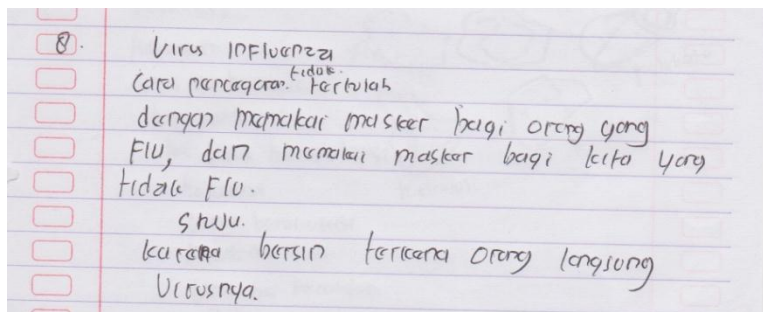 8. Virus Influenza
Cara pencegaran. tidak tertular
dengan memakai masker bagi orang yang
Flu, dan memakai masker bagi kita yang
tidak Flu.
karena bersin terkena orang langsung
Virusnya.